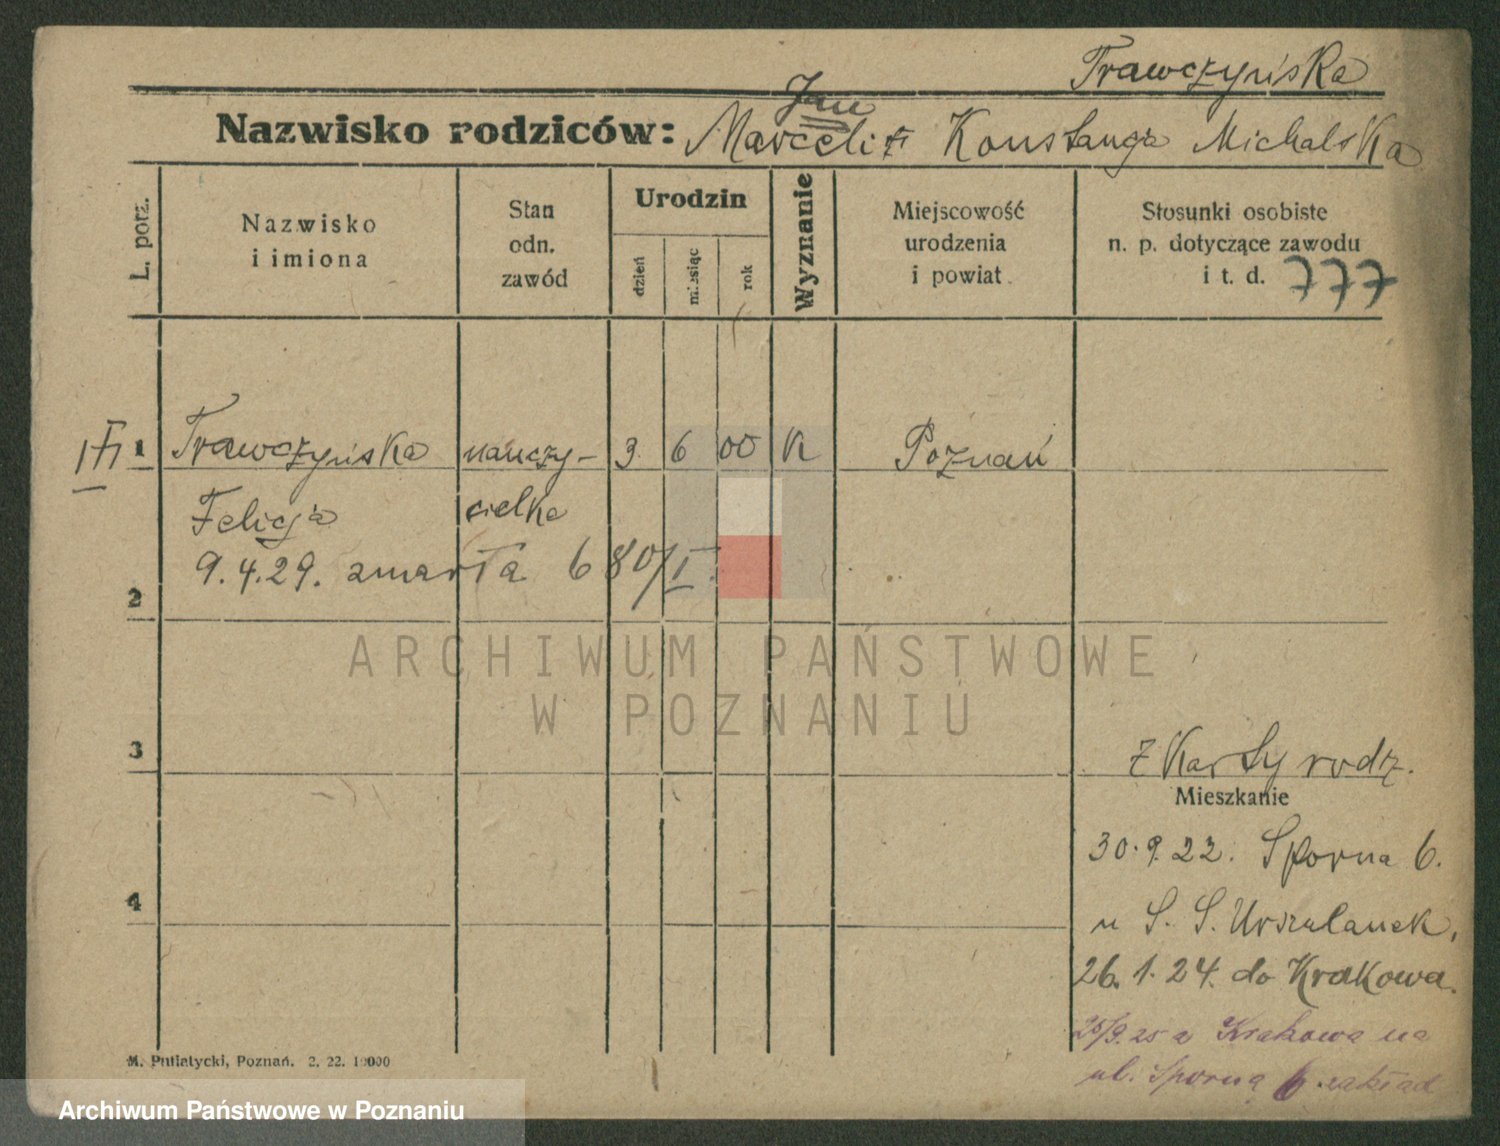 Trawczyńska
Jan
Nazwisko rodziców: Marceli Konstancja Michalska
L. porz.
Nazwisko
i imiona
Stan
odn.
zawód
Urodzin
dzień
miesiąc
rok
Wyznanie
Miejscowość
urodzenia
i powiat
Stosunki osobiste
n. p. dotyczące zawodu
i t. d. 777
1 Trawczyńska nauczy- 3 6 00 K Poznań
Felicja cielka
9.4.29. zmarła 680/I
2
ARCHIWUM PAŃSTWOWE
W POZNANIU
3
z Karty rodz.
Mieszkanie
30.9.22. Sporna 6.
4
u S. S. Urszulanek,
26.1.24. do Krakowa.
25/9.25 z Krakowa na
ul. Sporną 6. zakład
M. Putiatycki, Poznań. 2. 22. 10000
Archiwum Państwowe w Poznaniu